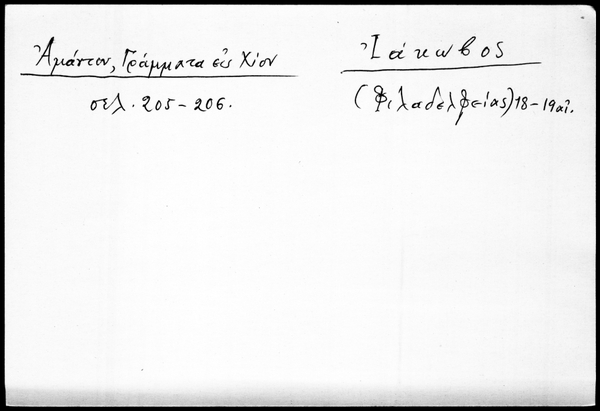 Ἀμάντου, Γράμματα εἰς Χίον
σελ. 205-206.
Ἰάκωβος
(Φιλαδελφείας) 18-19 αἰ.